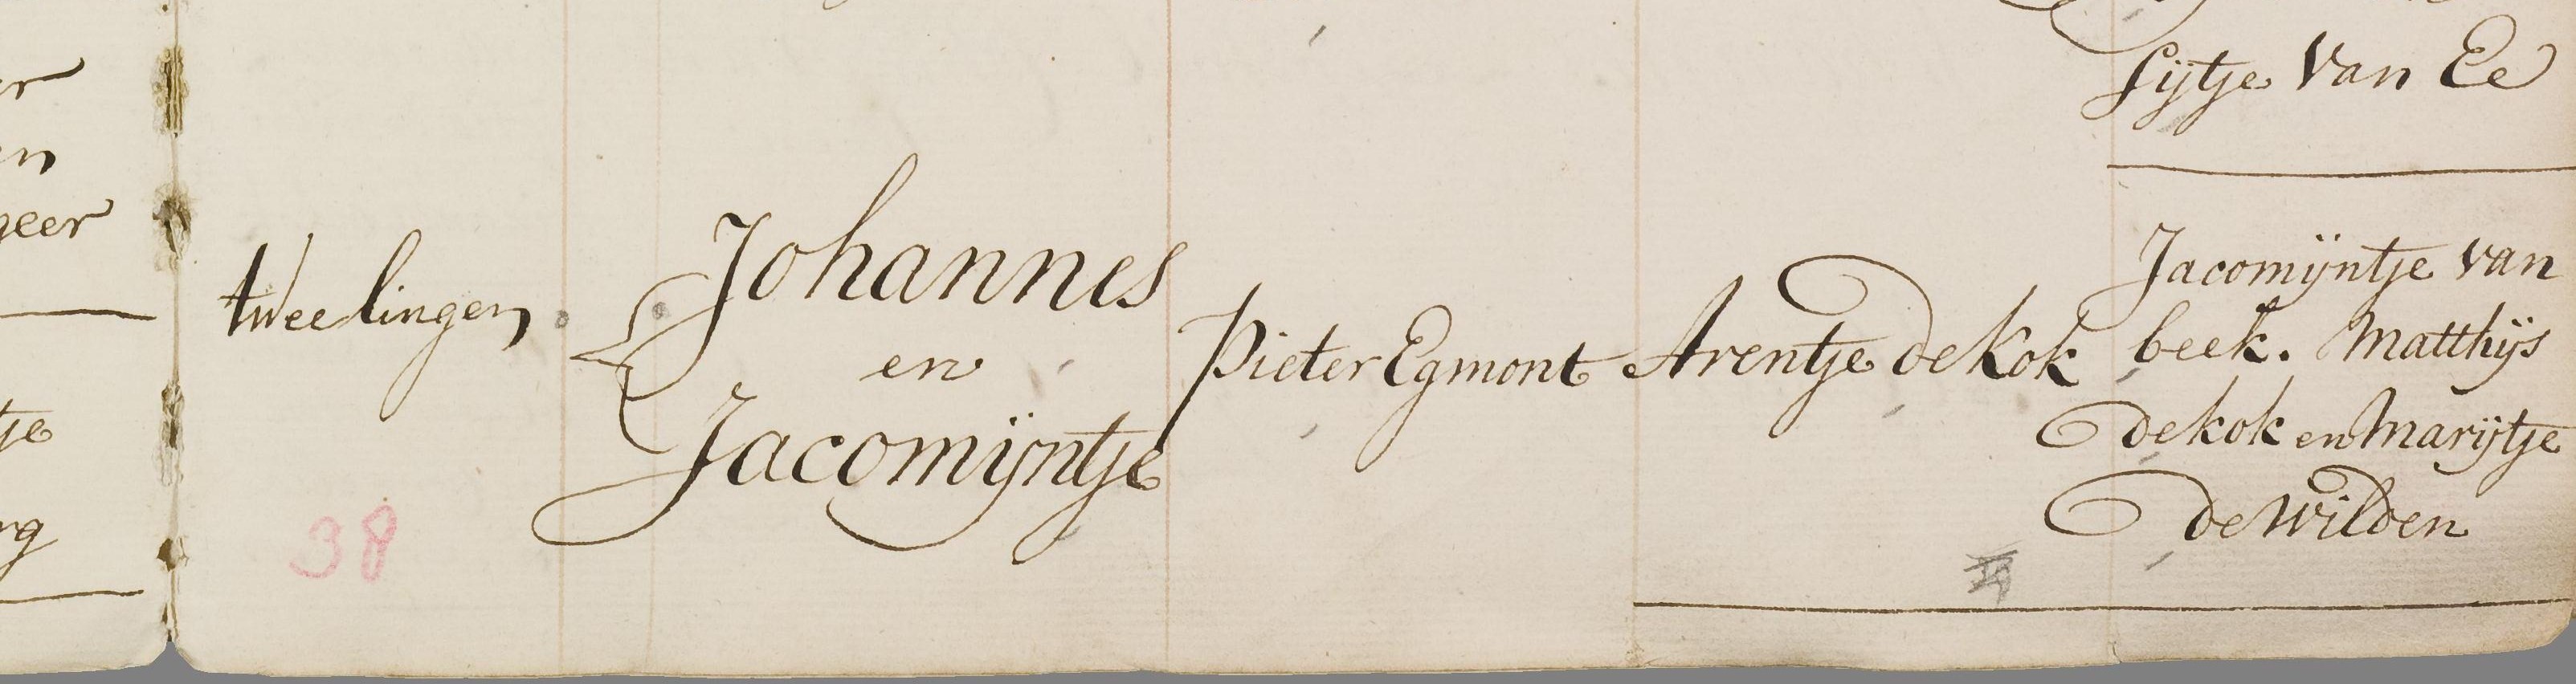 Sijtje Van Ee
geer
tweelingen
Johannes
en
Jacomijntje
Pieter Egmont
Arentje de Kok
Jacomijntje van
beek. Matthijs
de kok en Marijtje
de Wilden
38